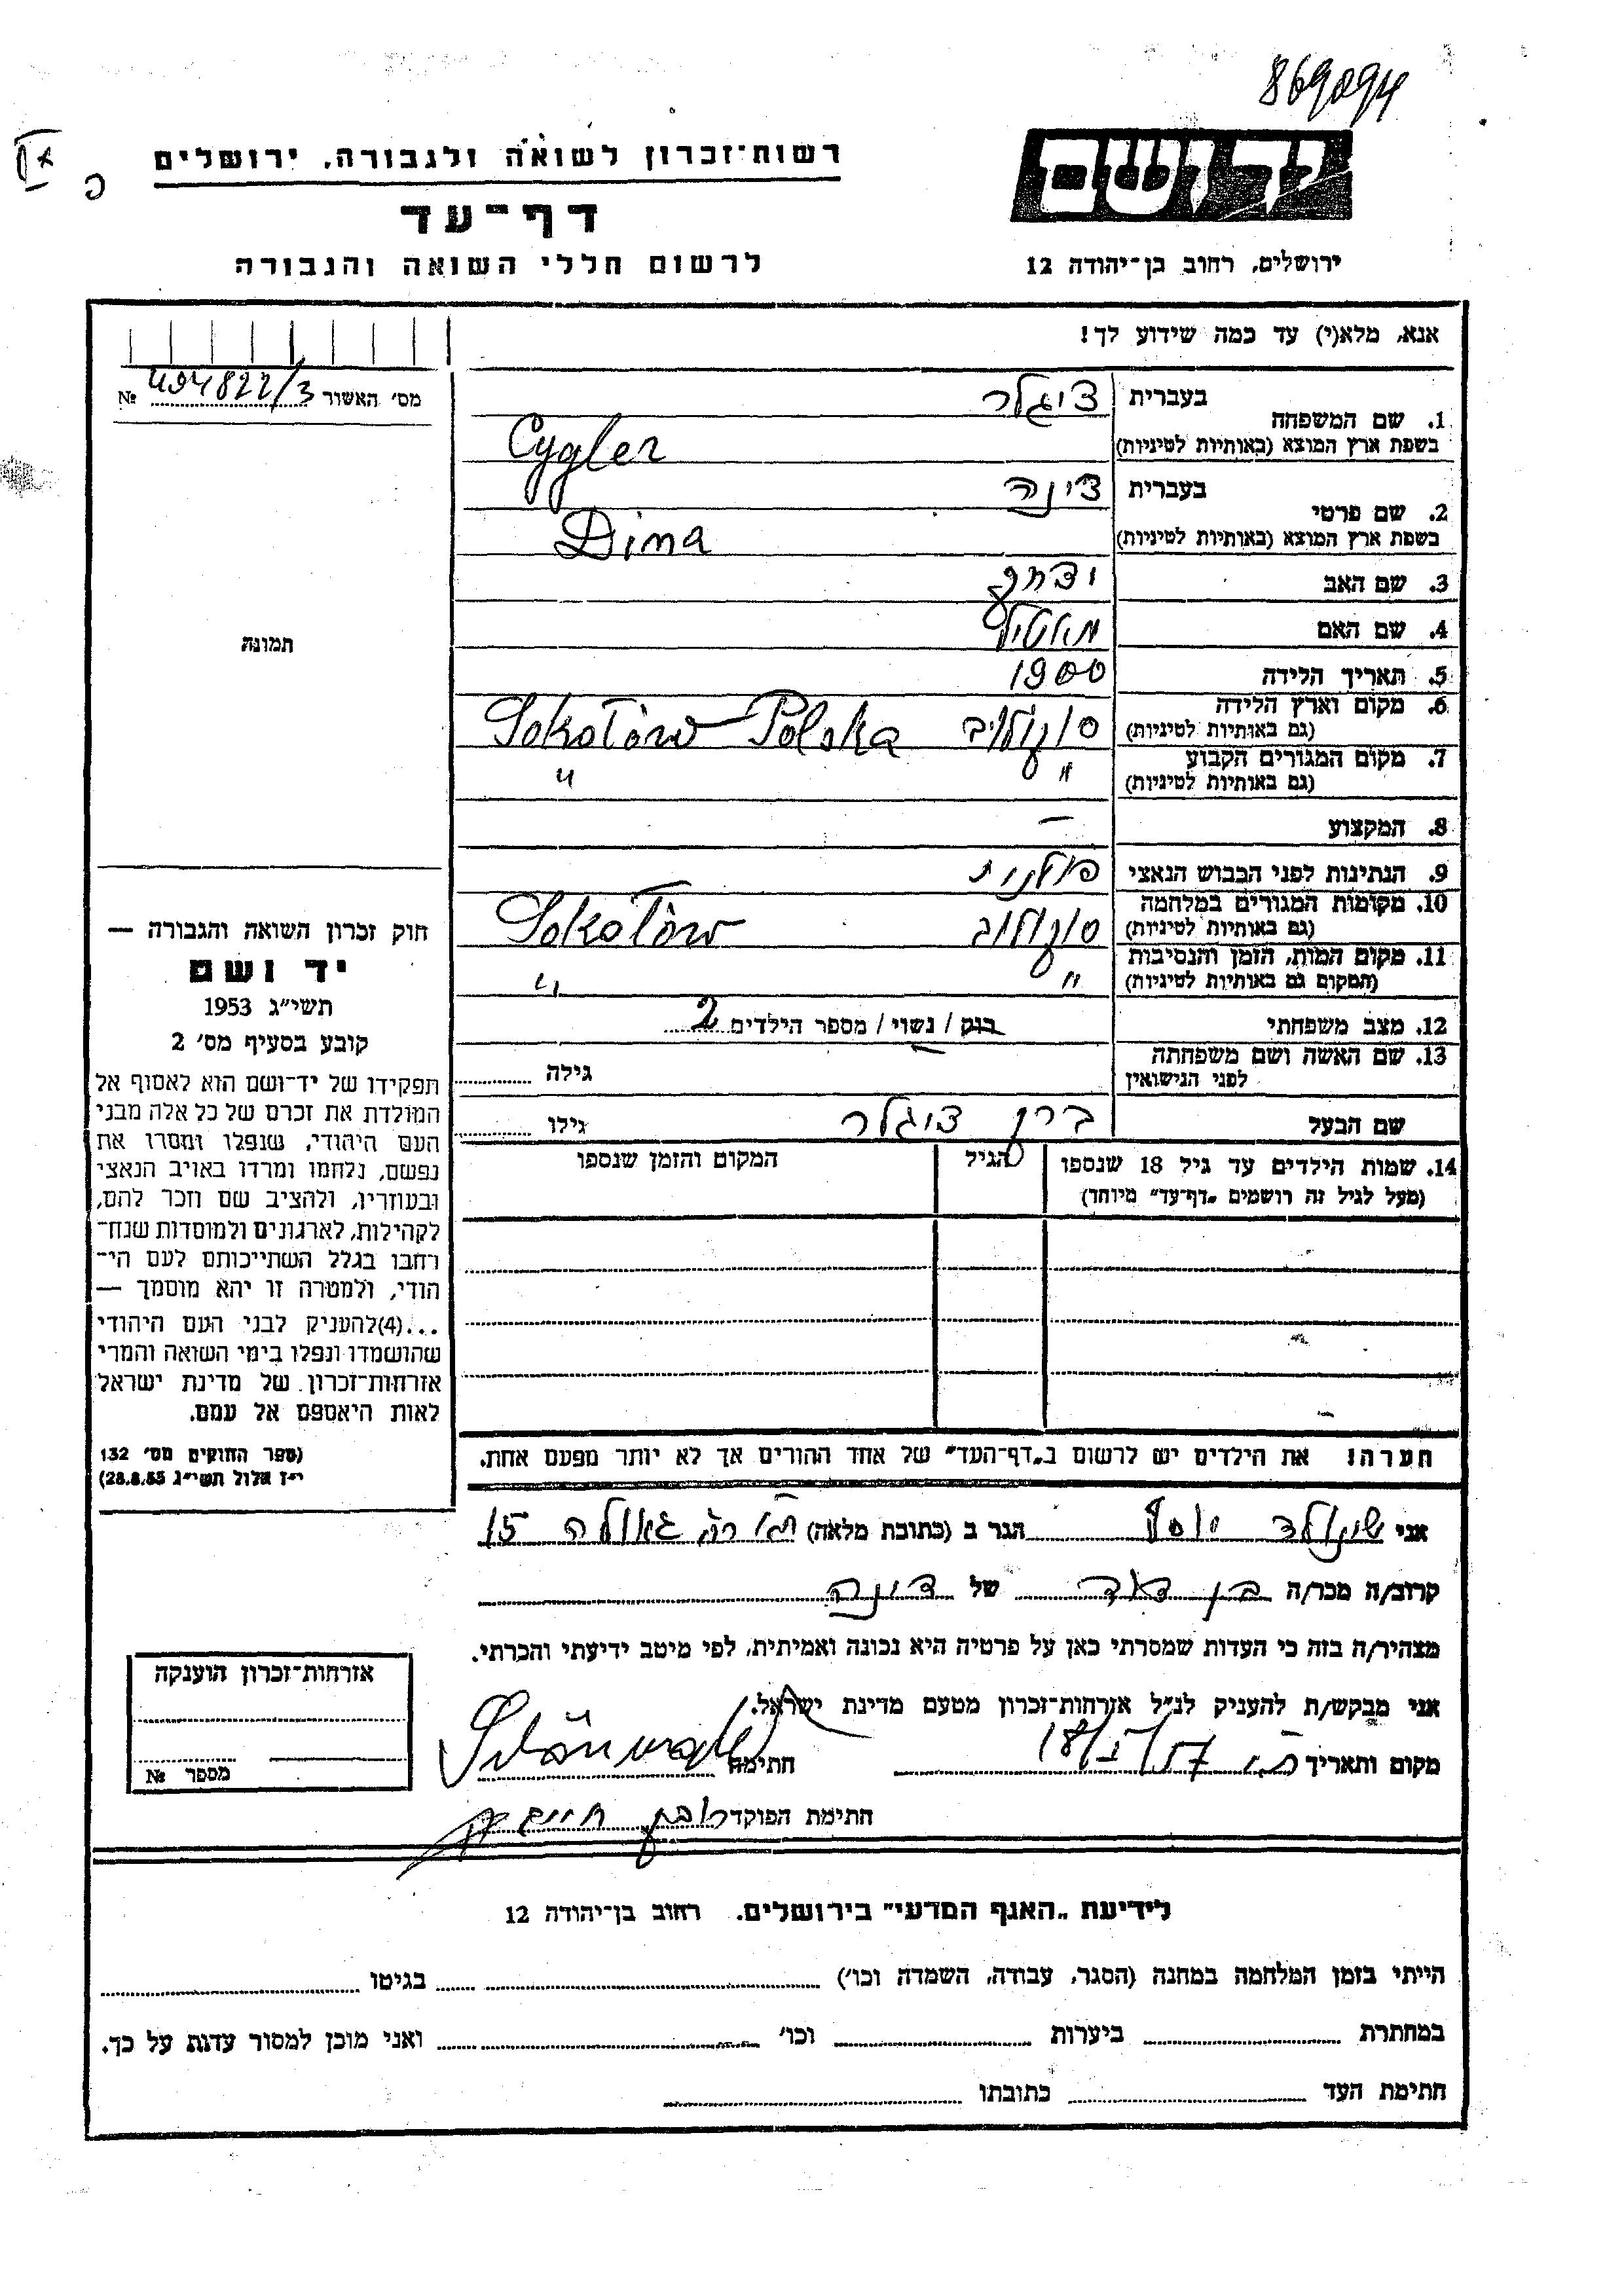 869094
רשות־זכרון לשואה ולגבורה, ירושלים
דף־עד
לרשום חללי השואה והגבורה
יד ושם
ירושלים, רחוב בן־יהודה 12
אנא, מלא(י) עד כמה שידוע לך!
מס׳ האשור 494822/3 №
1. שם המשפחה
בעברית ציגלר
בשפת ארץ המוצא (באותיות לטיניות) Cygler
2. שם פרטי
בעברית דינה
בשפת ארץ המוצא (באותיות לטיניות) Dina
3. שם האב יצחק
4. שם האם
5. תאריך הלידה 1900
6. מקום וארץ הלידה
(גם באותיות לטיניות) סוקולוב Sokołów Polska
7. מקום המגורים הקבוע
(גם באותיות לטיניות) " "
8. המקצוע —
9. הנתינות לפני הכבוש הנאצי פולנית
10. מקומות המגורים במלחמה
(גם באותיות לטיניות) סוקולוב Sokołów
11. מקום המות, הזמן והנסיבות
(המקום גם באותיות לטיניות) " "
12. מצב משפחתי רווק / נשוי / מספר הילדים 2
13. שם האשה ושם משפחתה
לפני הנישואין גילה
שם הבעל ברן ציגלר גילו
14. שמות הילדים עד גיל 18 שנספו
(מעל לגיל זה רושמים „דף־עד״ מיוחד)
הגיל
המקום והזמן שנספו
תמונה
חוק זכרון השואה והגבורה —
יד ושם
תשי״ג 1953
קובע בסעיף מס׳ 2
תפקידו של יד־ושם הוא לאסוף אל
המולדת את זכרם של כל אלה מבני
העם היהודי, שנפלו ומסרו את
נפשם, נלחמו ומרדו באויב הנאצי
ובעוזריו, ולהציב שם וזכר להם,
לקהילות, לארגונים ולמוסדות שנח־
רחבו בגלל השתייכותם לעם הי־
הודי, ולמטרה זו יהא מוסמך —
...(4)להעניק לבני העם היהודי
שהושמדו ונפלו בימי השואה והמרי
אזרחות־זכרון של מדינת ישראל
לאות היאספם אל עמם.
(ספר החוקים מס׳ 132
י״ז אלול תשי״ג 28.8.53)
הערה! את הילדים יש לרשום ב„דף־העד״ של אחד ההורים אך לא יותר מפעם אחת.
אני שינולד יוסף הגר ב (כתובת מלאה) גאולה 15
קרוב/ה מכר/ה בן דוד של דינה
מצהיר/ה בזה כי העדות שמסרתי כאן על פרטיה היא נכונה ואמיתית, לפי מיטב ידיעתי והכרתי.
אני מבקש/ת להעניק לנ״ל אזרחות־זכרון מטעם מדינת ישראל.
מקום ותאריך 18/I/57 חתימה
חתימת הפוקד
אזרחות־זכרון הוענקה
מספר №
לידיעת „האגף המדעי״ בירושלים, רחוב בן־יהודה 12
הייתי בזמן המלחמה במחנה (הסגר, עבודה, השמדה וכו׳) בגיטו
במחתרת ביערות וכו׳ ואני מוכן למסור עדות על כך.
חתימת העד כתובתו